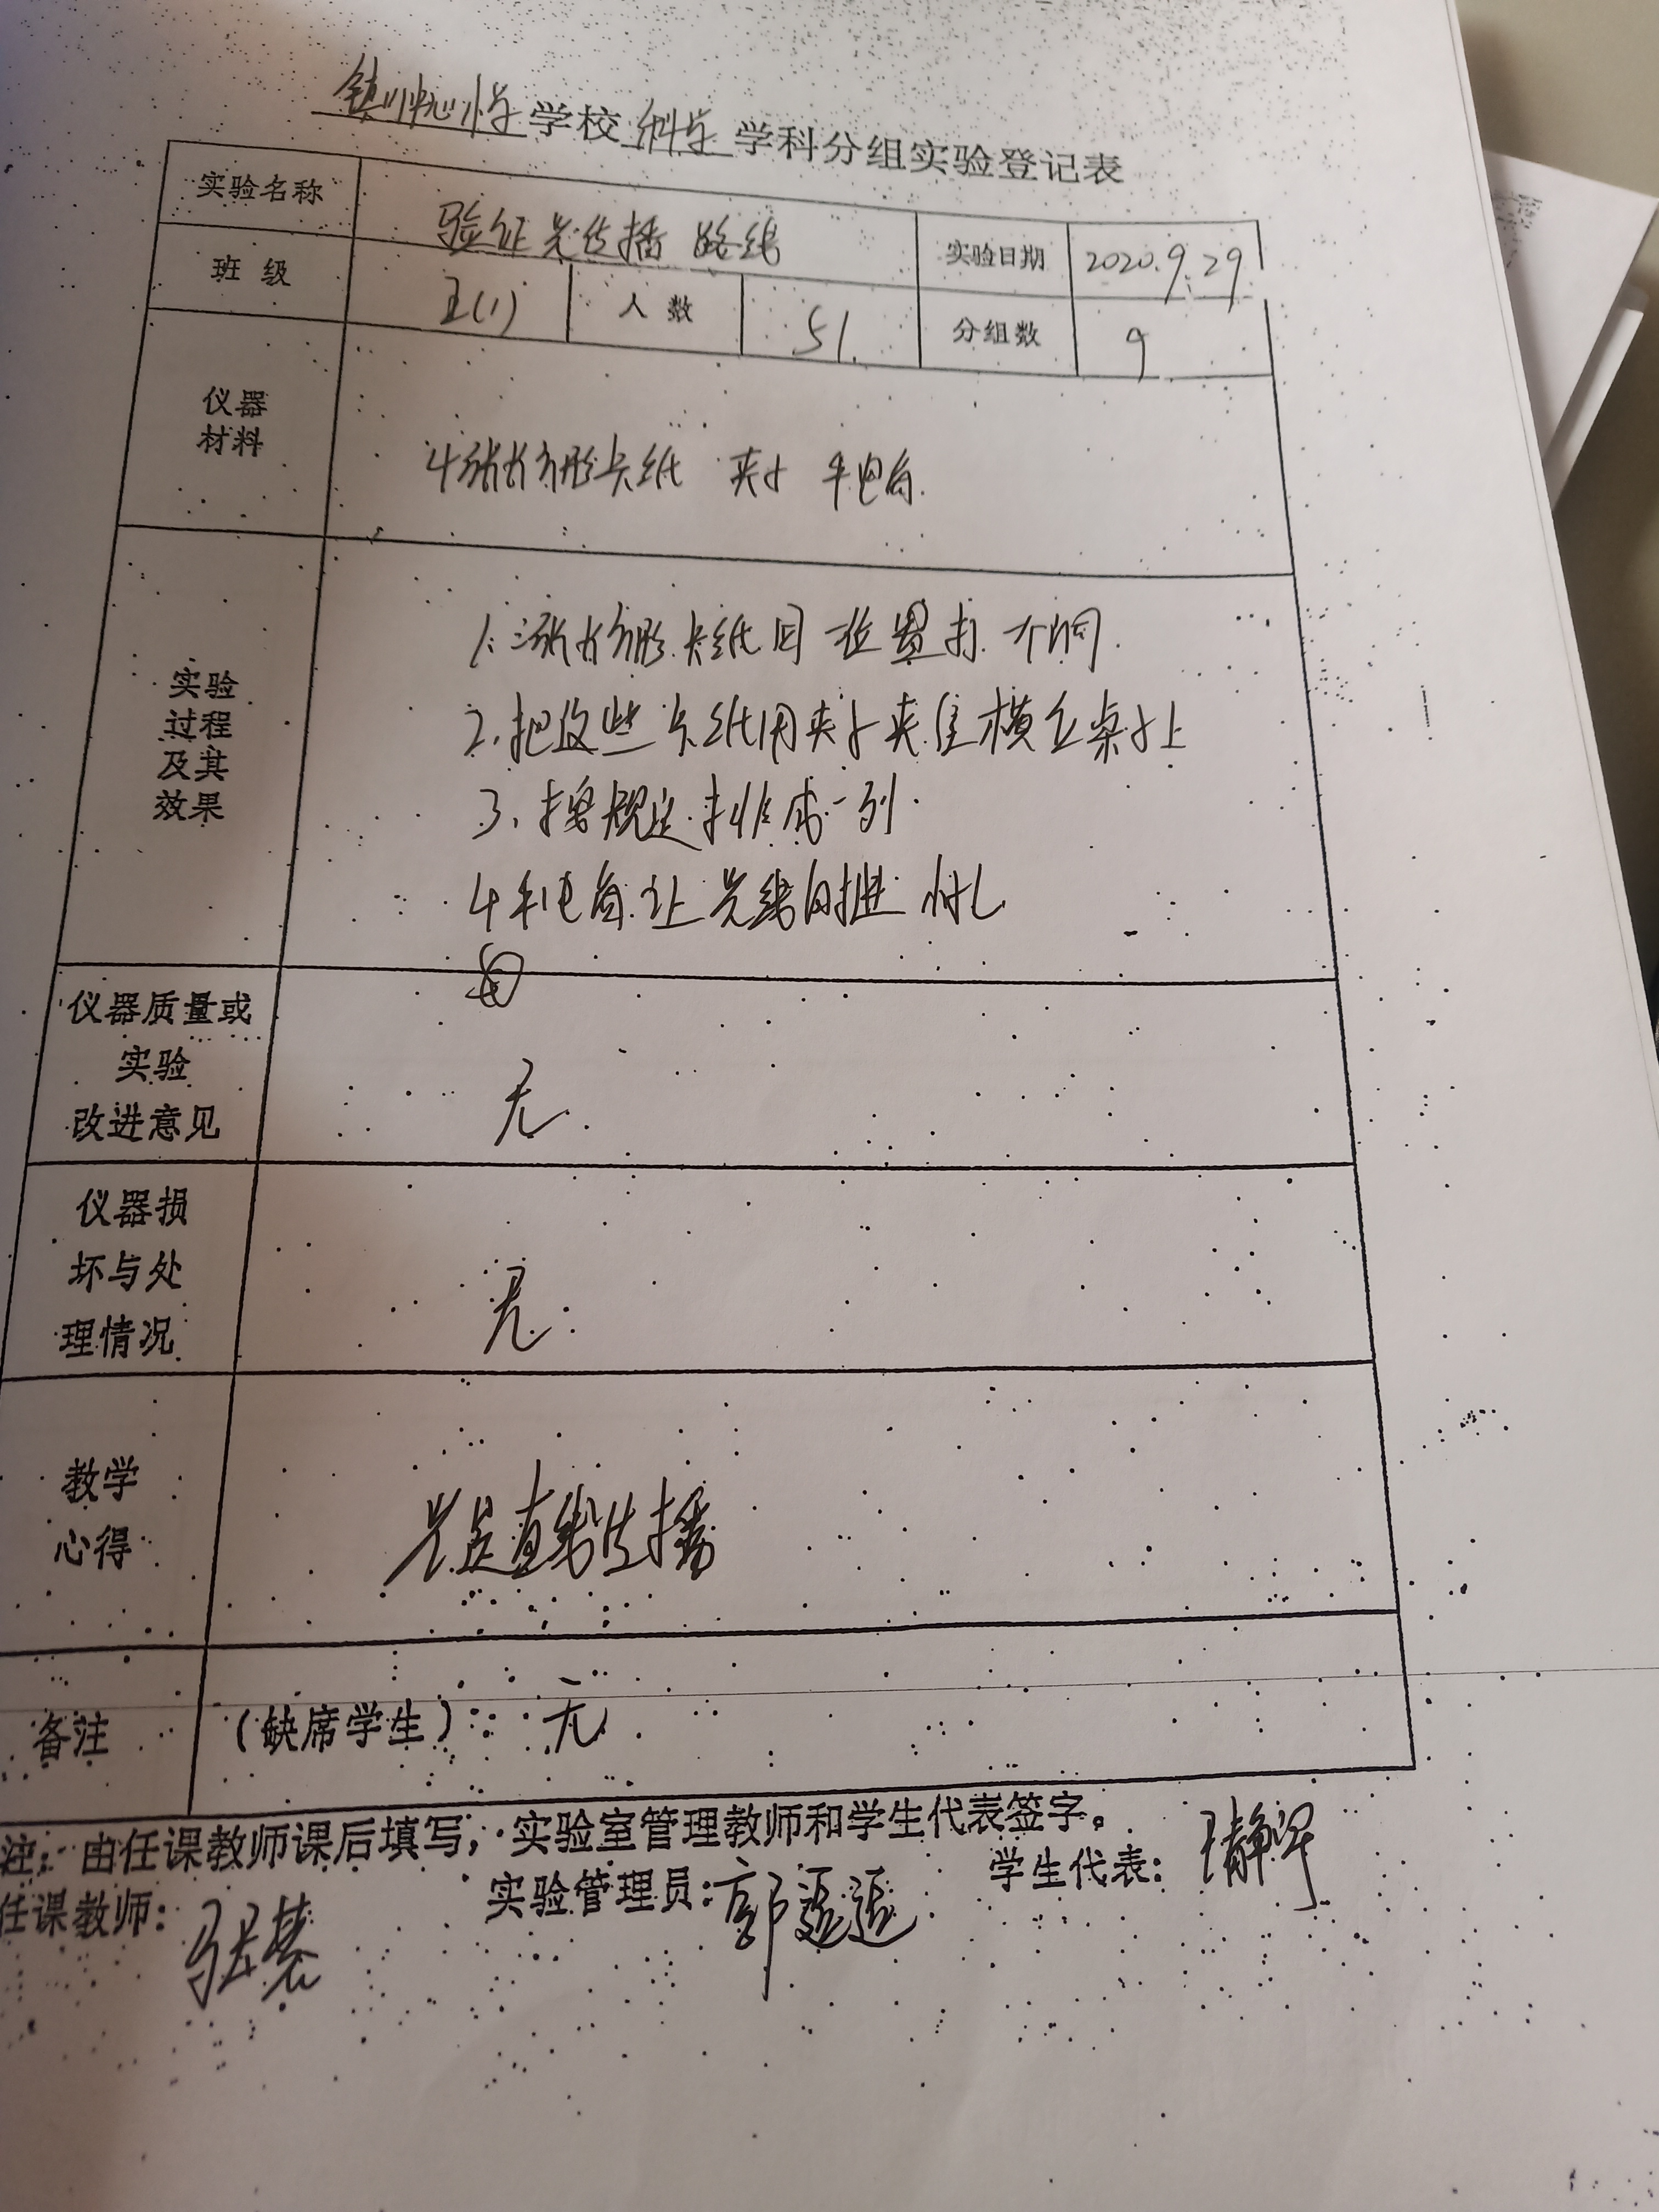 镇川中心小学学校科学学科分组实验登记表
实验名称 验证光传播路线 实验日期 2020.9.29
班级 五(1) 人数 51. 分组数 9
仪器
材料
4张长方形卡纸 夹子 手电筒.
实验
过程
及其
效果
1.三张长方形卡纸同一位置打一个洞.
2.把这些卡纸用夹子夹住横立桌子上
3、按规定排成一列.
4手电筒让光线
仪器质量或
实验
改进意见
无.
仪器损
坏与处
理情况
无.
教学
心得
光是直线传播
备注 (缺席学生): 无
注: 由任课教师课后填写, 实验室管理教师和学生代表签字。
任课教师: 实验管理员: 郭 学生代表: